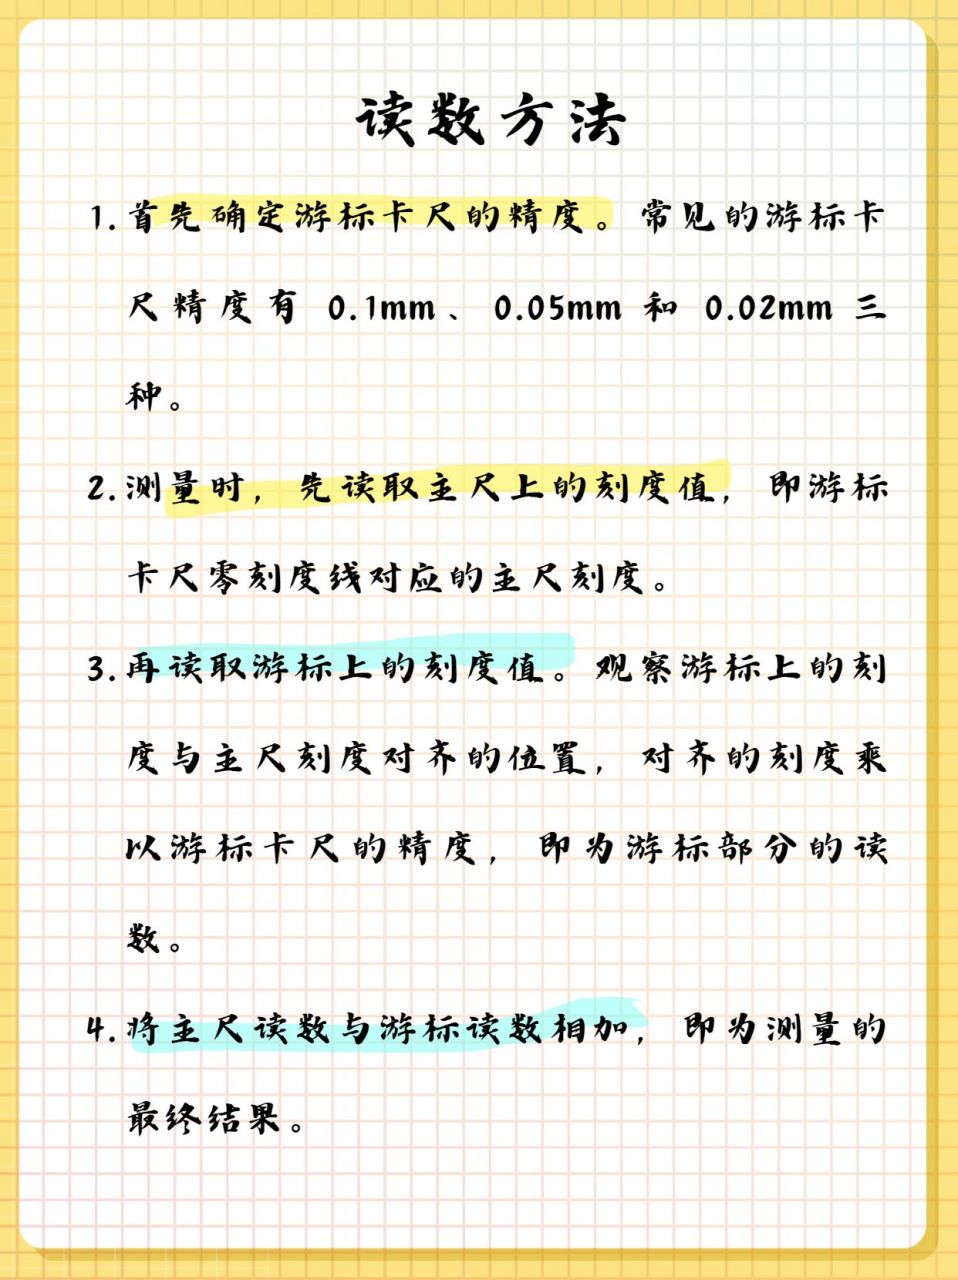 读数方法
1. 首先确定游标卡尺的精度。常见的游标卡
尺精度有 0.1mm、0.05mm 和 0.02mm 三
种。
2. 测量时，先读取主尺上的刻度值，即游标
卡尺零刻度线对应的主尺刻度。
3. 再读取游标上的刻度值。观察游标上的刻
度与主尺刻度对齐的位置，对齐的刻度乘
以游标卡尺的精度，即为游标部分的读
数。
4. 将主尺读数与游标读数相加，即为测量的
最终结果。